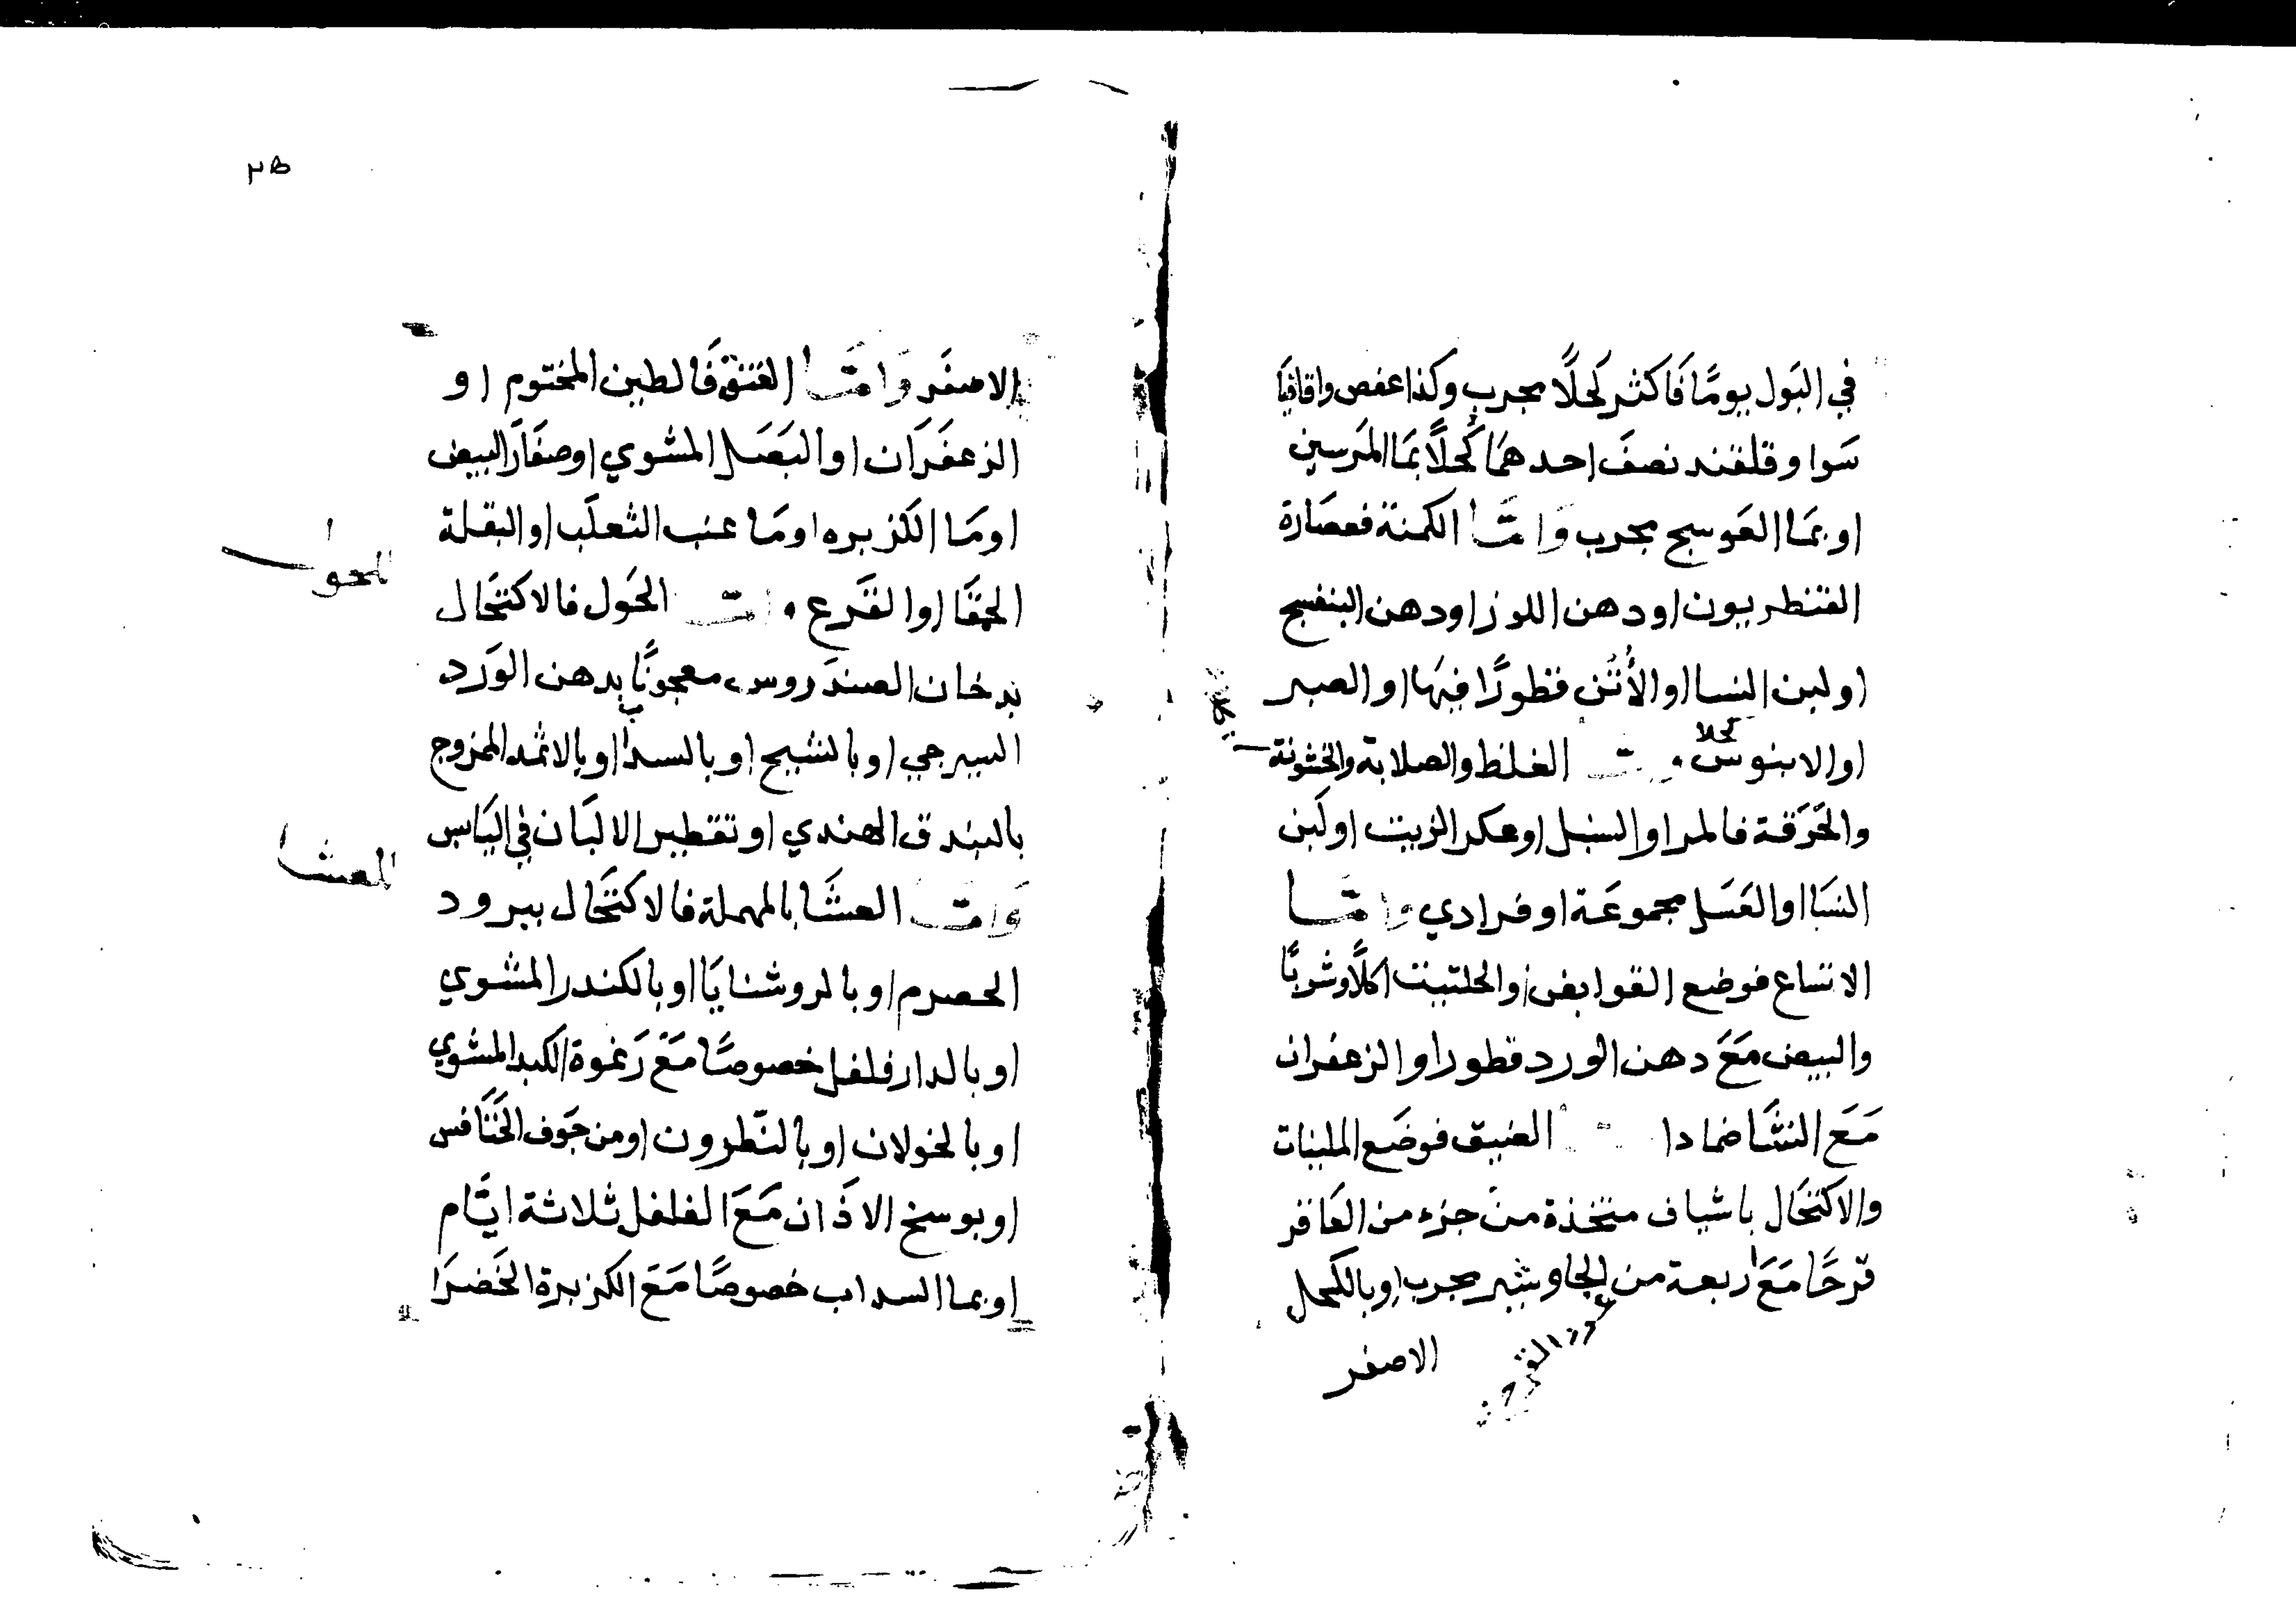 في البَول يومًا فَاكثر كَحلًا مجرب وكذا عفص واقاقيَا
سَوا وقلقند نصفَ احدهمَا كَحلًا بمَا المَرسين
او بمَا العَوسج مجرب وَامّـَا الكمنة فعصَارة
القنطريون او دهن اللوز او دهن البنفسج
او لبن النسا او الأُتُن قطورًا فيهَا او الصبر
او الابنوس كحلا وامـّا الغلظ والصلابة والخشونة
والحَرَقة فالمر او السنبل او عكر الزيت او لَبن
النسَا او العَسَل مجموعَة او فرادي وامّـَا
الاتساع فوضع القوابض والحلتيت اكلًا وشربًا
والبيض مَعَ دهن الورد قطورا او الزعفران
مَعَ النشَا ضمادا وامـّا الضيق فوضَع الملينات
والاكتحَال باشياف متخذة من جزء من العَاقر
قرحًا مَعَ اربعة من الجاوشير مجرب او بالكحل
الاصفر
٣٥
الاصفَر وَامّـَا الفتق فَالطين المختوم او
الزعفَرَان او البَصَل المشوي او صفَارَ البيض
او مَا الكزبره او مَا عنب الثعلَب او البقلة
الحمقَا او القَرع وامـّا الحَول فالاكتحَال
بدخان الصندَروس معجونًا بدهن الوَرد
السيرجي او بالشيح او بالسداب او بالاثمد الممزوج
بالبندق الهندي او تقطير الالبَان في اليَابس
للحول
وَامّـا العشَا بالمهملة فالاكتحَال ببرود
للعشا
الحصرم او بالروشنايَا او بالكندر المشوي
او بالدارفلفل خصوصًا مَعَ رَغوة الكبد المشوي
او بالخولان او بالنّطرون او من جَوف الخَنَافس
او بوسخ الاذَان مَعَ الفلفل ثلاثة ايَّام
او بما السداب خصوصًا مَعَ الكزبرة الخَضرَا